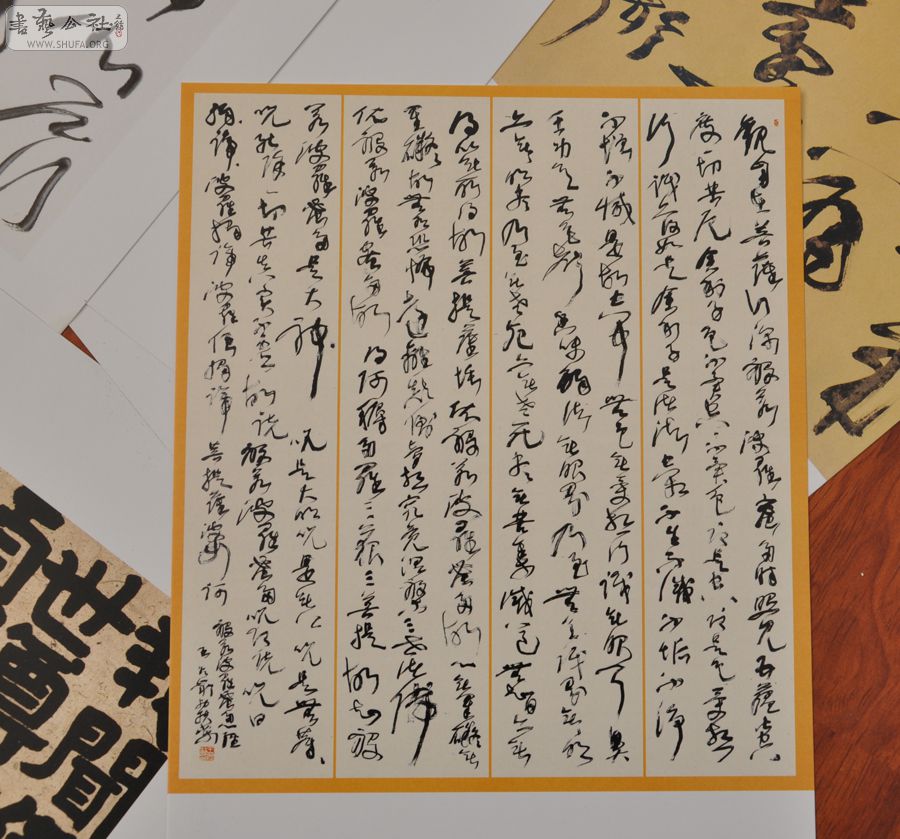 書藝公社
WWW.SHUFA.ORG
觀自在菩薩行深般若波羅蜜多時照見五蘊皆空
度一切苦厄舍利子色不異空空不異色色即是空空即是色受想
行識亦復如是舍利子是諸法空相不生不滅不垢不淨
不增不減是故空中無色無受想行識無眼耳鼻
舌身意無色聲香味觸法無眼界乃至無意識界無無明
亦無無明盡乃至無老死亦無老死盡無苦集滅道無智亦無
得以無所得故菩提薩埵依般若波羅蜜多故心無罣礙無
罣礙故無有恐怖遠離顛倒夢想究竟涅槃三世諸佛
依般若波羅蜜多故得阿耨多羅三藐三菩提故知般
若波羅蜜多是大神咒是大明咒是無上咒是無等等
咒能除一切苦真實不虛故說般若波羅蜜多咒即說咒曰
揭諦揭諦波羅揭諦波羅僧揭諦菩提薩婆訶
般若波羅蜜多心經
聞
世尊